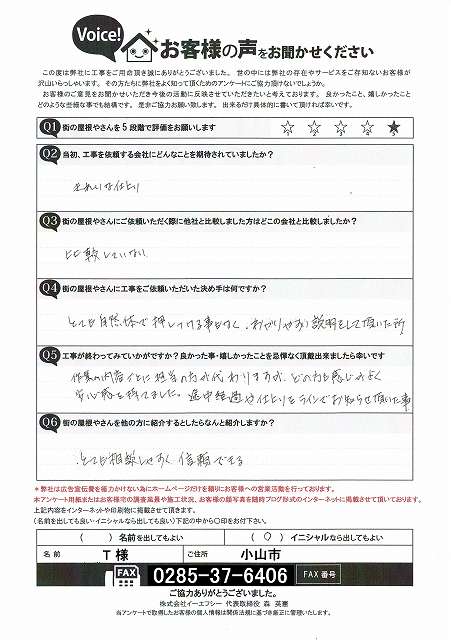 Voice!
お客様の声をお聞かせください
この度は弊社に工事をご用命頂き誠にありがとうございました。世の中には弊社の存在やサービスをご存知ないお客様が
沢山いらっしゃいます。その方たちに弊社をよく知って頂くためのアンケートにご協力頂けないでしょうか。
お客様のご意見をお聞かせいただき今後の活動に反映させていただきたいと考えております。良かったこと、嬉しかったこと
どのような些細な事でも結構です。是非ご協力お願い致します。出来るだけ具体的に書いて頂ければ幸いです。
Q1 街の屋根やさんを5段階で評価をお願いします ☆ ☆ ☆ ☆ ★
Q2 当初、工事を依頼する会社にどんなことを期待されていましたか?
きれいな仕上り
Q3 街の屋根やさんにご依頼いただく際に他社と比較しました方はどこの会社と比較しましたか?
比較していない
Q4 街の屋根やさんに工事をご依頼いただいた決め手は何ですか?
とても自然体で押しつける事もなく、わかりやすい説明をして頂いた所
Q5 工事が終わってみていかがですか?良かった事・嬉しかったことを忌憚なく頂戴出来ましたら幸いです
作業の内容ごとに担当の方が代わりますが、どの方も感じがよく
安心感を持てました。途中経過や仕上りをラインでお知らせ頂いた事
Q6 街の屋根やさんを他の方に紹介するとしたらなんと紹介しますか?
とても相談しやすく信頼できる
*弊社は広告宣伝費を極力かけない為にホームページだけを頼りにお客様への営業活動を行っております。
本アンケート用紙またはお客様宅の調査風景や施工状況、お客様の顔写真を随時ブログ形式のインターネットに掲載させて頂いております。
上記内容をインターネットや印刷物に掲載させて頂きます。
(名前を出しても良い・イニシャルなら出しても良い)下記の中から〇印をお付け下さい。
( )名前を出してもよい ( 〇 )イニシャルなら出してもよい
名前 T様 ご住所 小山市
FAX 0285-37-6406 FAX番号
ご協力ありがとうございました。
株式会社イーエフシー 代表取締役 森 英憲
当アンケートで取得したお客様の個人情報は関係法規に基づき厳正に管理いたします。